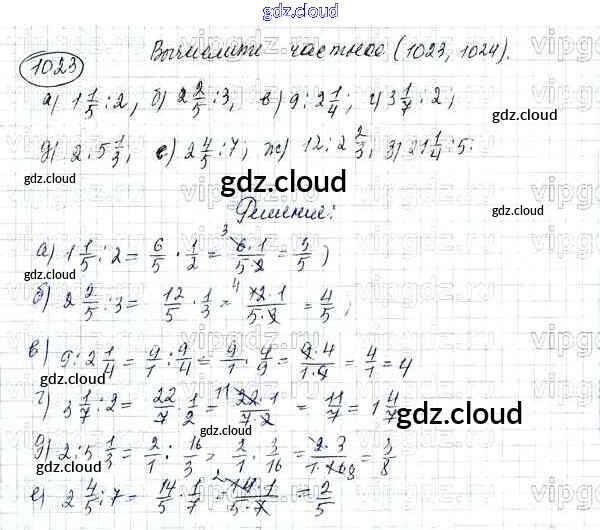 gdz.cloud
1023 Вычислите частное (1023, 1024).
а) 1 1/5 : 2; б) 2 2/5 : 3; в) 9 : 2 1/4; г) 3 1/7 : 2;
gdz.cloud
д) 2 : 5 1/3; е) 2 4/5 : 7; ж) 12 : 2 2/3; з) 21 1/4 : 5.
gdz.cloud
gdz.cloud
gdz.cloud
Решение:
а) 1 1/5 : 2 = 6/5 · 1/2 = 6·1/5·2 = 3/5;
gdz.cloud
б) 2 2/5 : 3 = 12/5 · 1/3 = 12·1/5·3 = 4/5;
gdz.cloud
в) 9 : 2 1/4 = 9/1 : 9/4 = 9/1 · 4/9 = 9·4/1·9 = 4/1 = 4
г) 3 1/7 : 2 = 22/7 · 1/2 = 22·1/7·2 = 11/7 = 1 4/7
gdz.cloud
gdz.cloud
д) 2 : 5 1/3 = 2/1 : 16/3 = 2/1 · 3/16 = 2·3/1·16 = 3/8
gdz.cloud
gdz.cloud
е) 2 4/5 : 7 = 14/5 · 1/7 = 14·1/5·7 = 2/5
gdz.cloud